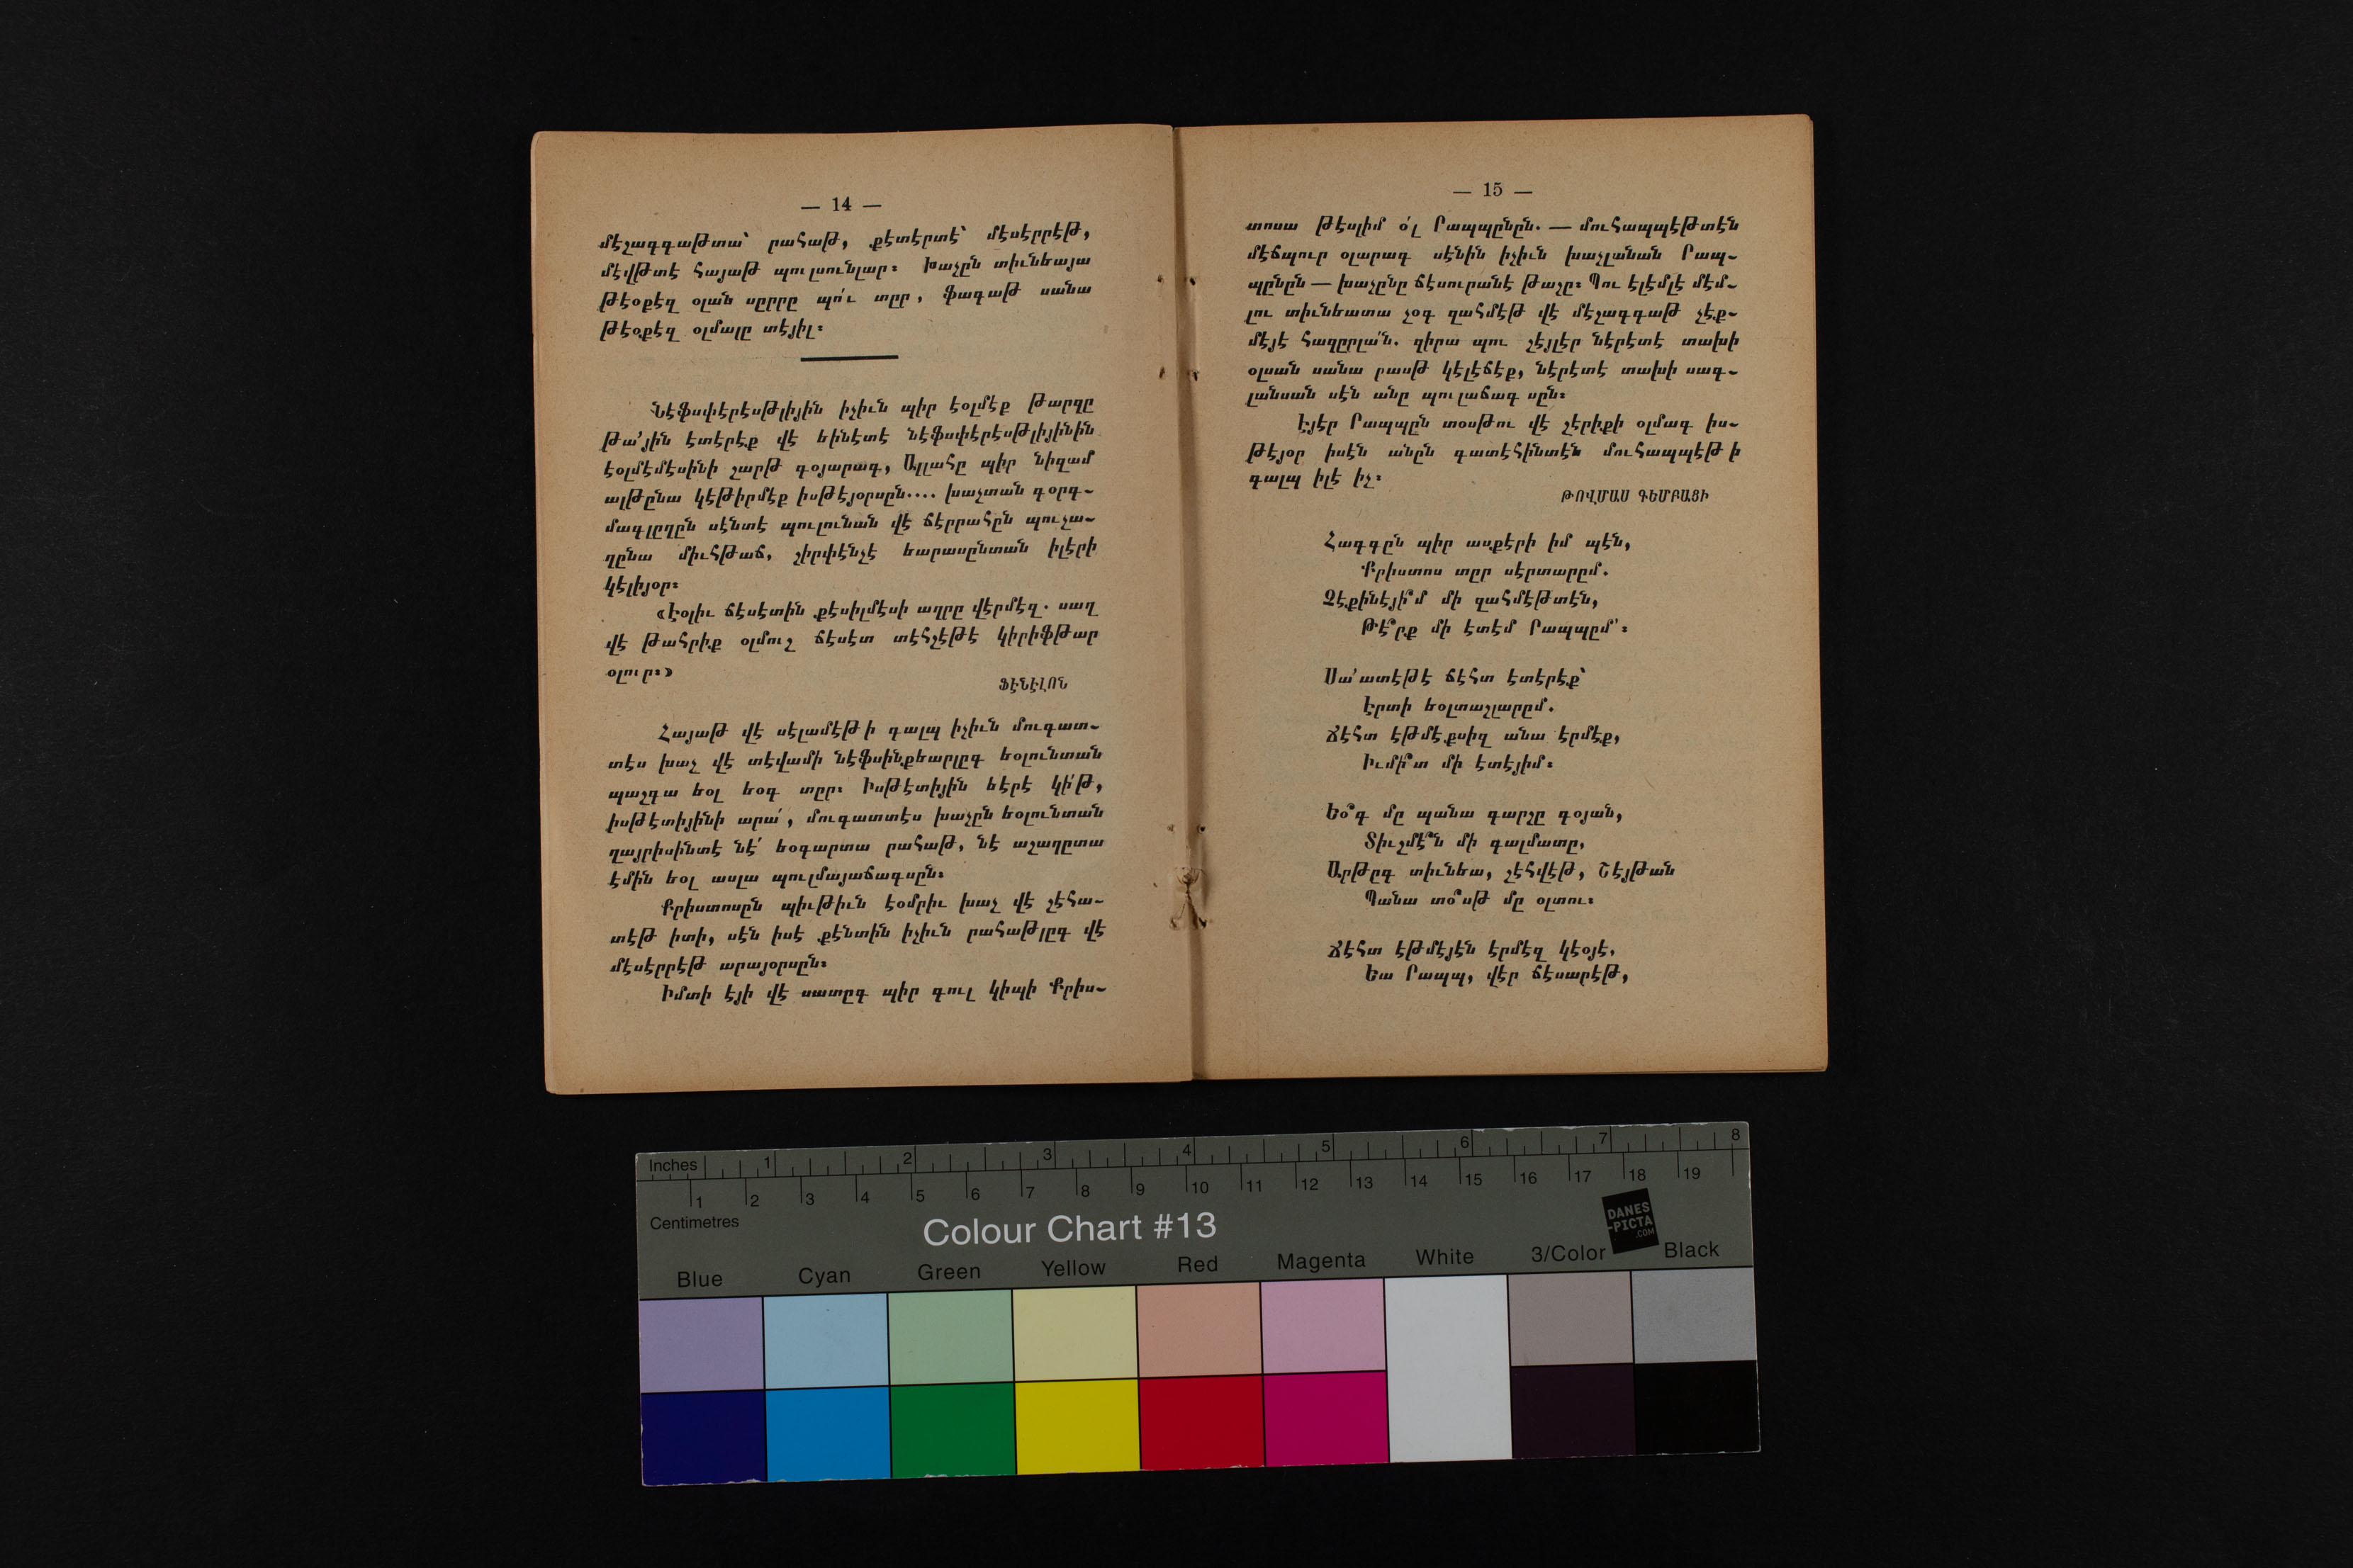 — 14 —
մէշագգաթտա՝ րահաթ, քէտէրտէ՝ մէսէրրէթ,
մէվթտէ հայաթ պուլսունլար։ Խաչըն տիւնեայա
թէօքէզ օլան սըրրը պո՛ւ տըր, ֆագաթ սանա
թէօքէզ օլմալը տէյիլ։
Նէֆսփէրէսթլիյին իչիւն պիր էօլմէք թարզը
թա՛յին էտէրէք վէ եինէտէ նէֆսփէրէսթլիյինին
էօլմէմէսինի շարթ գօյարագ, Ալլահը պիր նիզամ
ալթընա կէթիրմէք իսթէյօրսըն.... խաչտան գօրգ-
մագլըղըն սէնտէ պուլունան վէ ճէրրահըն պուչա-
ղընա միւհթաճ, չիրփէնչէ եարասընտան իլէրի
կէլիյօր։
«Էօլիւ ճէսէտին քէսիլմէսի աղրը վէրմէզ. սաղ
վէ թահրիք օլմուշ ճէսէտ տէհշէթէ կիրիֆթար
օլուր։»
ՖԷՆԷԼՈՆ
Հայաթ վէ սէլամէթի գալպ իչիւն մուգատ-
տէս խաչ վէ տէվամի նէֆսինքեարլըգ եօլունտան
պաշգա եօլ եօգ տըր։ Իսթէտիյին եէրէ կի՛թ,
իսթէտիյինի արա՛, մուգատտէս խաչըն եօլունտան
ղայրիսինտէ նէ՛ եօգարտա րահաթ, նէ աշաղըտա
էմին եօլ ասլա պուլմայաճագսըն։
Քրիստոսըն պիւթիւն էօմրիւ խաչ վէ շէհա-
տէթ իտի, սէն իսէ քէնտին իչիւն րահաթլըգ վէ
մէսէրրէթ արայօրսըն։
Իմտի էյի վէ սատըգ պիր գուլ կիպի Քրիս-
— 15 —
տոսա թէսլիմ օ՛լ Րապպընըն. — մուհապպէթտէն
մէճպուր օլարագ սէնին իչիւն խաչլանան Րապ-
պընըն — խաչընը ճէսուրանէ թաշը։ Պու էլէմլէ մէմ-
լու տիւնեատա չօգ զահմէթ վէ մէշագգաթ չէք-
մէյէ հազըրլա՛ն. զիրա պու շէյլէր նէրէտէ տախի
օլսան սանա րասթ կէլէճէք, նէրէտէ տախի սագ-
լանսան սէն անը պուլաճագ սըն։
Էյէր Րապպըն տօսթու վէ շէրիքի օլմագ իս-
թէյօր իսէն անըն գատէհինտէն մուհապպէթի
գալպ իլէ իչ։
ԹՈՎՄԱՍ ԳԵՄԲԱՑԻ
Հագգըն պիր ասքէրի իմ պէն,
Քրիստոս տըր սէրտարըմ.
Չէքինէյի՞մ մի զահմէթտէն,
Թէ՞րք մի էտէմ Րապպըմ՝։
Սա՛ատէթէ ճէհտ էտէրէք՝
Էրտի եօլտաշլարըմ.
Ճէհտ էթմէքսիզ անա էրմէք,
Իւմի՞տ մի էտէյիմ։
Եօ՞գ մը պանա գարշը գօյան,
Տիւշմէ՞ն մի գալմատը,
Արթըգ տիւնեա, շէհվէթ, Շէյթան
Պանա տօ՞սթ մը օլտու։
Ճէհտ էթմէյէն էրմէզ կէօյէ,
Եա Րապպ, վէր ճէսարէթ,
Inches 1 2 3 4 5 6 7 8
1 2 3 4 5 6 7 8 9 10 11 12 13 14 15 16 17 18 19
Centimetres
Colour Chart #13
DANES
-PICTA
.COM
Blue Cyan Green Yellow Red Magenta White 3/Color Black